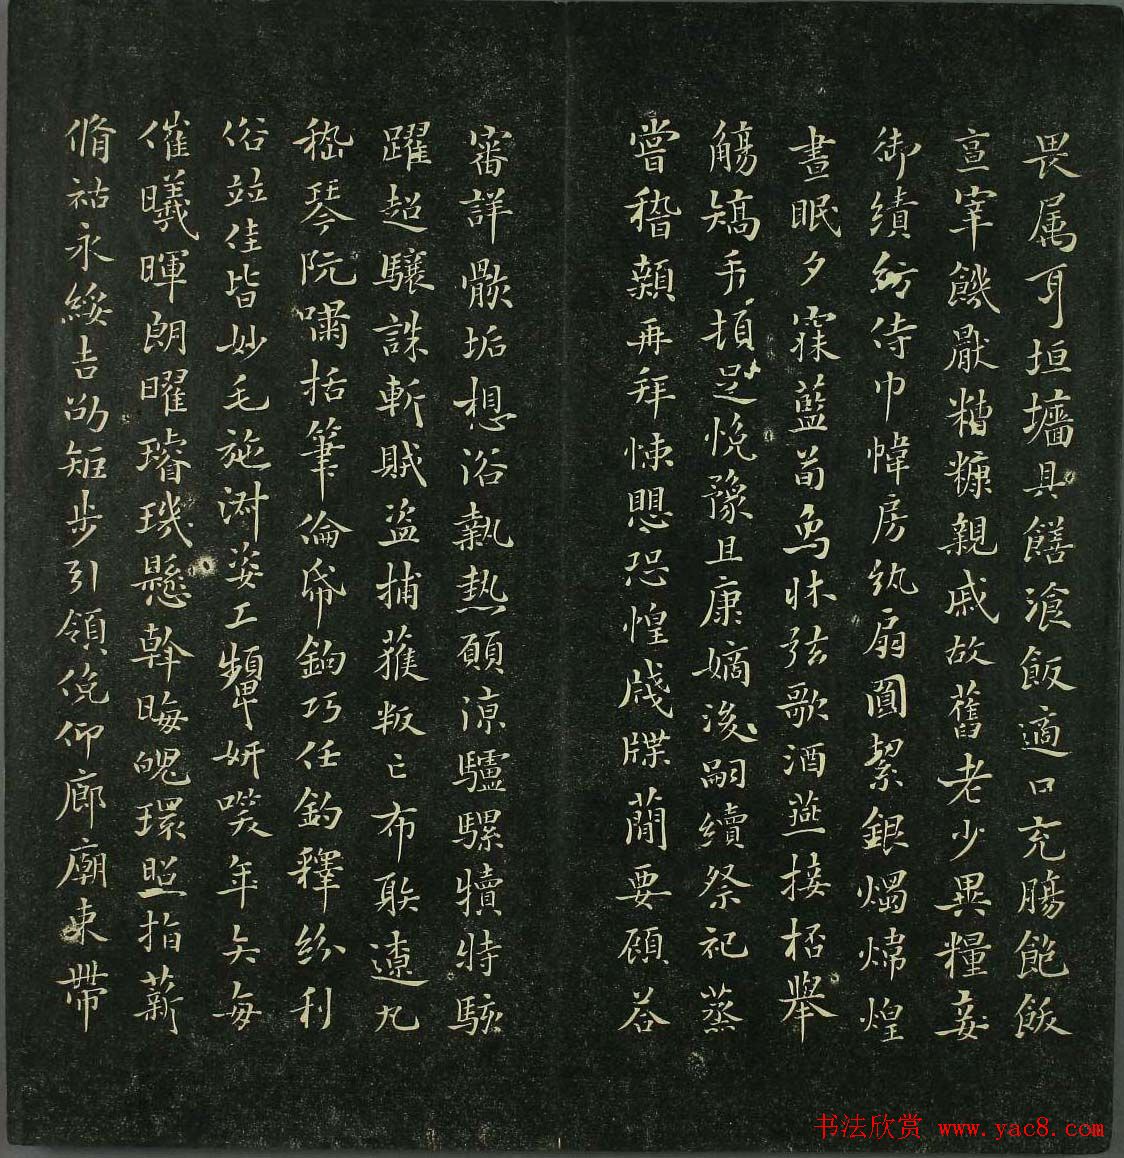 畏属耳垣墻具饍湌飯適口充膓飽飫
亯宰饑厭糟糠親戚故舊老少異糧妾
御績紡侍巾幃房紈扇圓絜銀燭煒煌
晝眠夕寐藍荀象牀弦歌酒燕接桮舉
觴矯手頓足悅豫且康嫡後嗣續祭祀蒸
嘗稽顙再拜悚懼恐惶牋牒蕳要顧荅
審詳骸垢想浴執熱願涼驢騾犢特駭
躍超驤誅斬賊盜捕獲叛亡布射遼丸
嵇琴阮嘯恬筆倫紙鈞巧任釣釋紛利
俗並佳皆妙毛施淑姿工顰妍笑年矢每
催曦暉朗曜璿璣懸斡晦魄環照指薪
脩祜永綏吉劭矩步引領俛仰廊廟束帶
书法欣赏 www.yac8.com